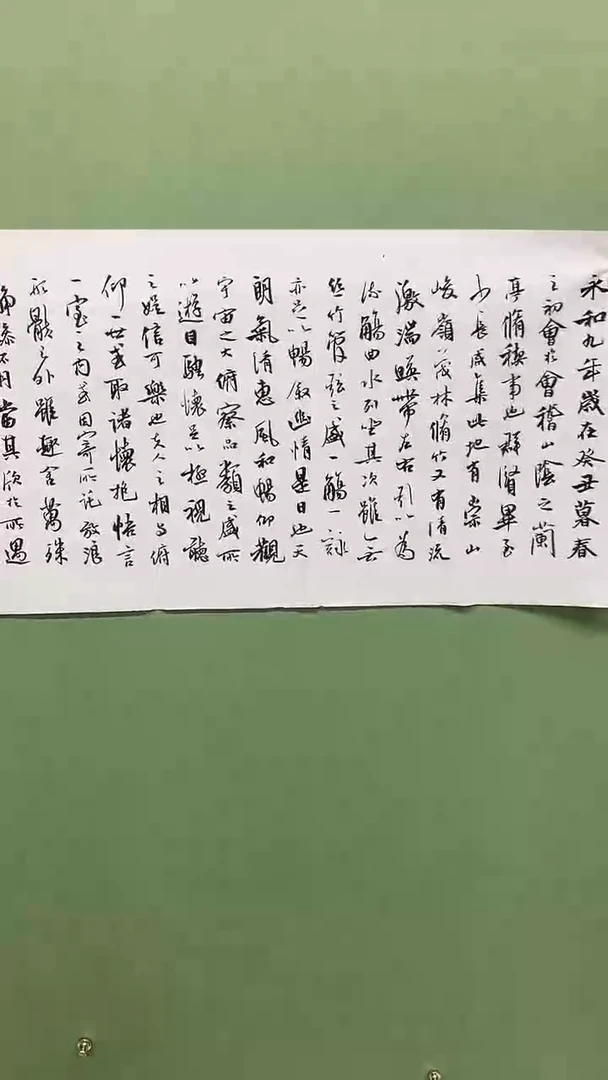 永和九年歲在癸丑暮春
之初會於會稽山陰之蘭
亭脩稧事也群賢畢至
少長咸集此地有崇山
峻嶺茂林脩竹又有清流
激湍暎帶左右引以為
流觴曲水列坐其次雖無
絲竹管弦之盛一觴一詠
亦足以暢敘幽情是日也天
朗氣清惠風和暢仰觀
宇宙之大俯察品類之盛所
以遊目騁懷足以極視聽
之娛信可樂也夫人之相與俯
仰一世或取諸懷抱悟言
一室之內或因寄所託放浪
形骸之外雖趣舍萬殊
靜躁不同當其欣於所遇